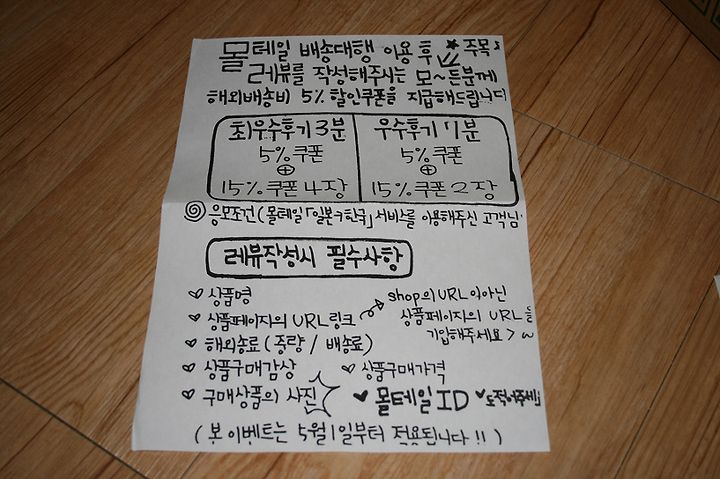 몰테일 배송대행 이용 후 ★주목!
레뷰를 작성해주시는 모~든분께
해외배송비 5% 할인쿠폰을 지급해드립니다
최우수후기 3분
5% 쿠폰
⊕
15% 쿠폰 4장
우수후기 7분
5% 쿠폰
⊕
15% 쿠폰 2장
응모조건 (몰테일 「일본→한국」 서비스를 이용해주신 고객님
레뷰작성시 필수사항
♡ 상품명
♡ 상품페이지의 URL링크
shop의 URL이아닌
상품페이지의 URL을
기입해주세요 >~
♡ 해외송료 (중량 / 배송료)
♡ 상품구매감상 ♡ 상품구매가격
♡ 구매상품의 사진 ♥ 몰테일 ID ♥도적어주세
( 본 이벤트는 5월 1일부터 적용됩니다 !! )